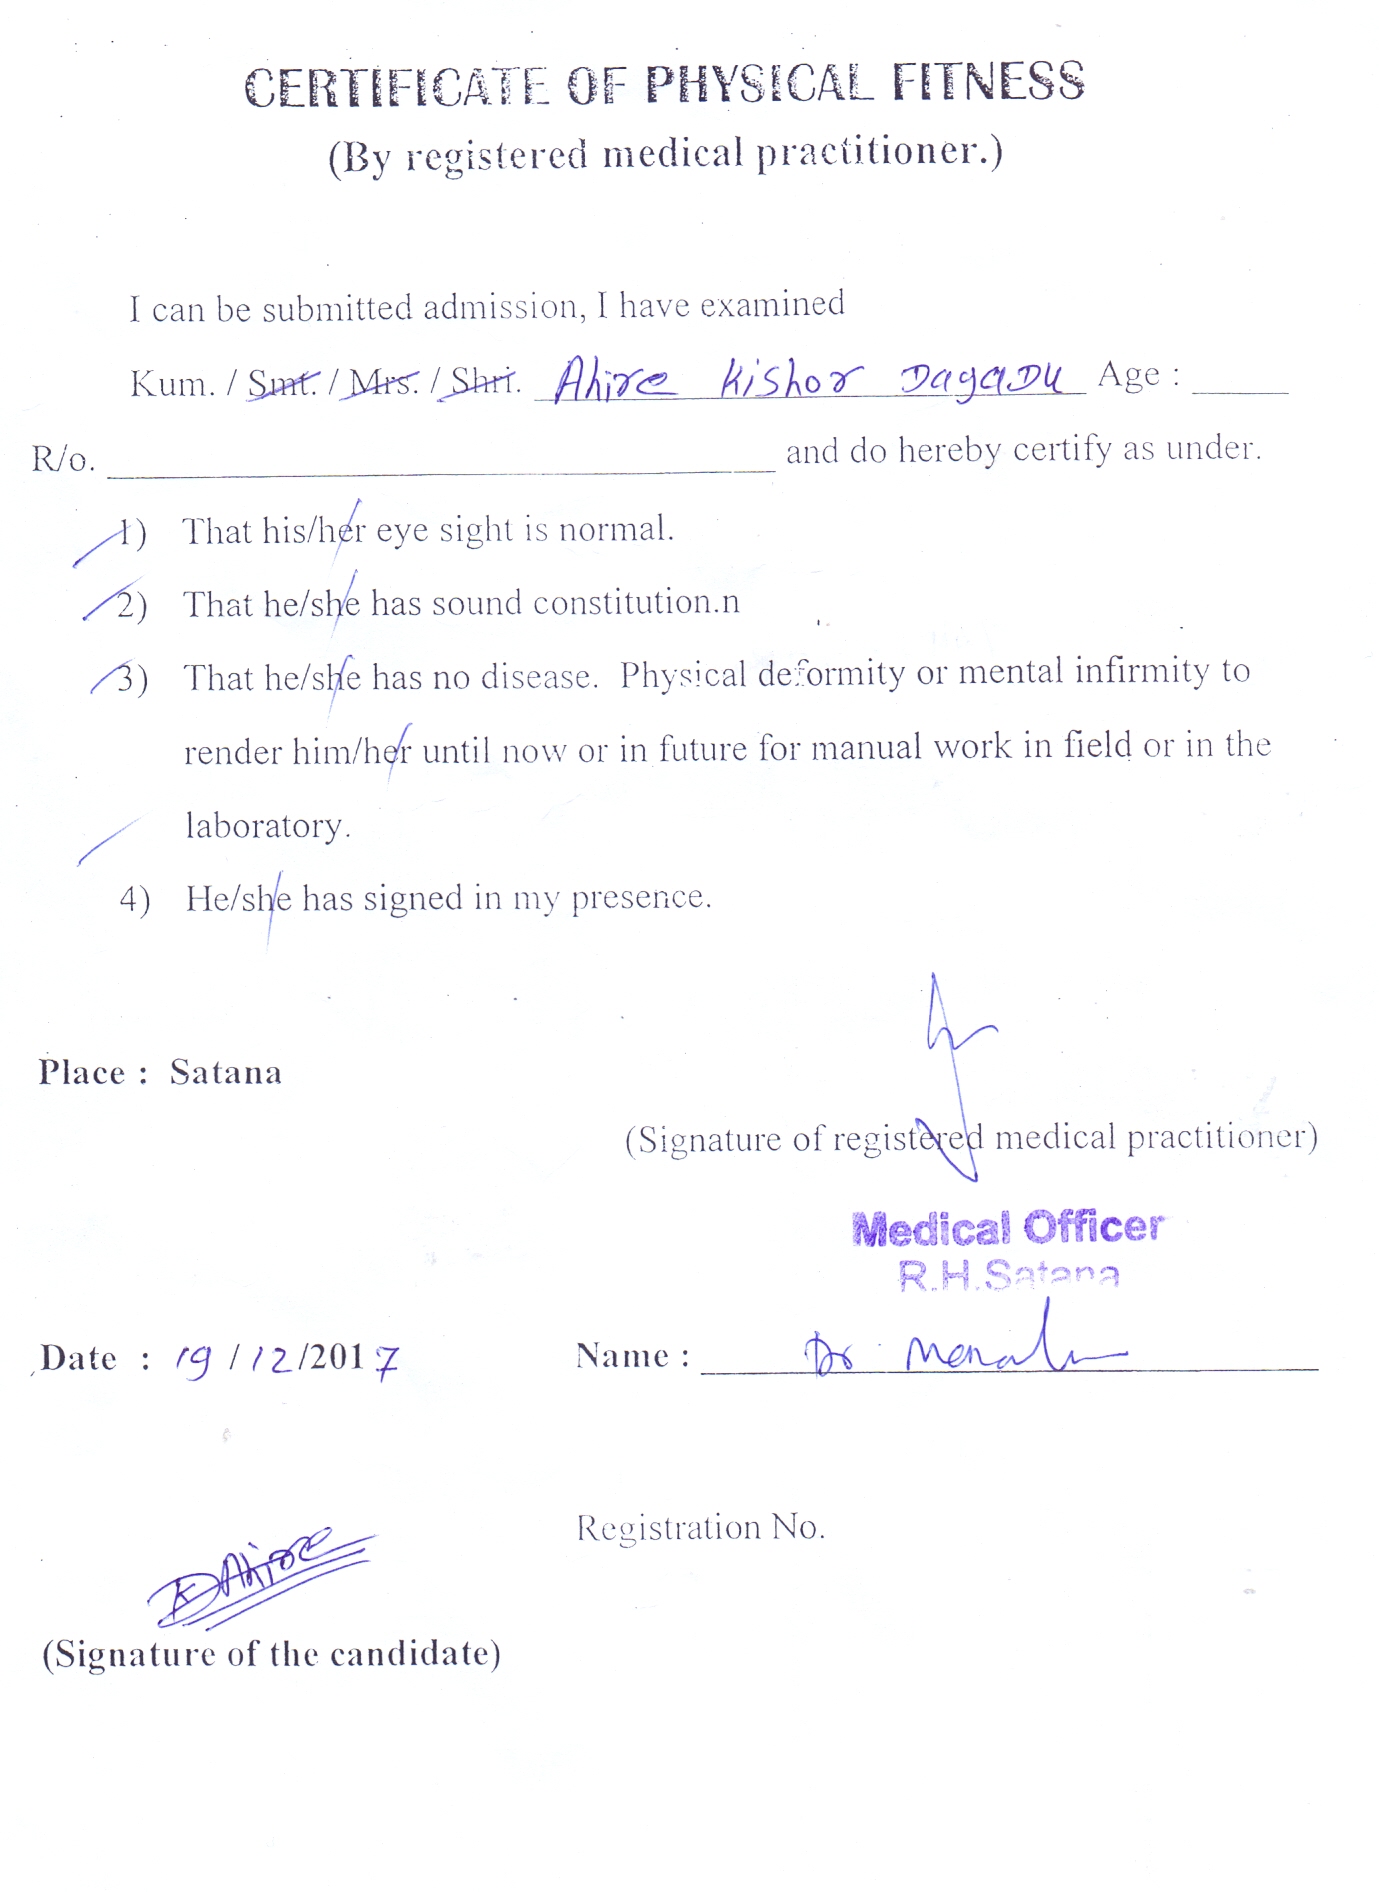 CERTIFICATE OF PHYSICAL FITNESS
(By registered medical practitioner.)
I can be submitted admission, I have examined
Kum. / Smt. / Mrs. / Shri. Ahire Kishor Dagadu Age :
R/o. and do hereby certify as under.
1) That his/her eye sight is normal.
2) That he/she has sound constitution.n
3) That he/she has no disease. Physical deformity or mental infirmity to
render him/her until now or in future for manual work in field or in the
laboratory.
4) He/she has signed in my presence.
Place : Satana
(Signature of registered medical practitioner)
Medical Officer
R.H.Satana
Date : 19/12/2017 Name : Dr
Registration No.
KDAhire
(Signature of the candidate)